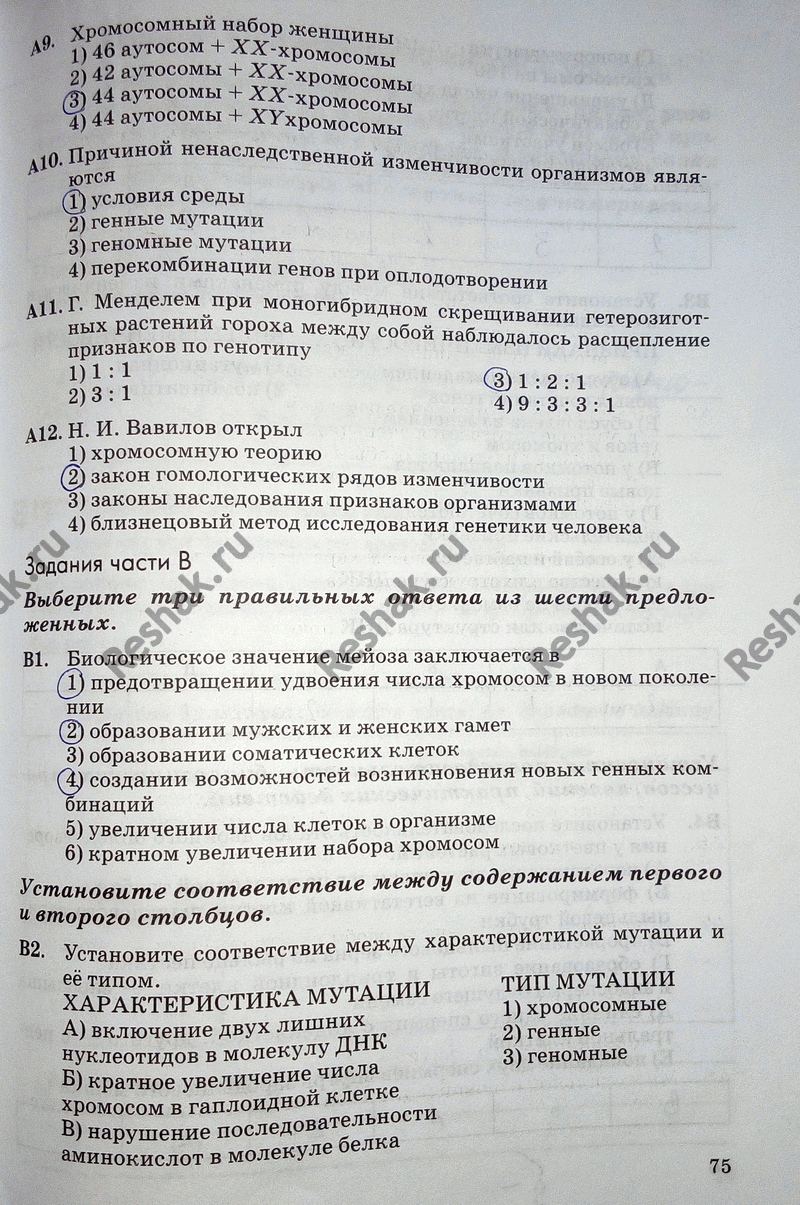 А9. Хромосомный набор женщины
1) 46 аутосом + XX-хромосомы
2) 42 аутосомы + XX-хромосомы
3) 44 аутосомы + XX-хромосомы
4) 44 аутосомы + XYхромосомы
А10. Причиной ненаследственной изменчивости организмов явля-
ются
1) условия среды
2) генные мутации
3) геномные мутации
4) перекомбинации генов при оплодотворении
А11. Г. Менделем при моногибридном скрещивании гетерозигот-
ных растений гороха между собой наблюдалось расщепление
признаков по генотипу
1) 1 : 1
2) 3 : 1
3) 1 : 2 : 1
4) 9 : 3 : 3 : 1
А12. Н. И. Вавилов открыл
1) хромосомную теорию
2) закон гомологических рядов изменчивости
3) законы наследования признаков организмами
4) близнецовый метод исследования генетики человека
Задания части В
Выберите три правильных ответа из шести предло-
женных.
В1. Биологическое значение мейоза заключается в
1) предотвращении удвоения числа хромосом в новом поколе-
нии
2) образовании мужских и женских гамет
3) образовании соматических клеток
4) создании возможностей возникновения новых генных ком-
бинаций
5) увеличении числа клеток в организме
6) кратном увеличении набора хромосом
Установите соответствие между содержанием первого
и второго столбцов.
В2. Установите соответствие между характеристикой мутации и
её типом.
ХАРАКТЕРИСТИКА МУТАЦИИ
А) включение двух лишних
нуклеотидов в молекулу ДНК
Б) кратное увеличение числа
хромосом в гаплоидной клетке
В) нарушение последовательности
аминокислот в молекуле белка
ТИП МУТАЦИИ
1) хромосомные
2) генные
3) геномные
75
Reshak.ru
Reshak.ru
Reshak.ru